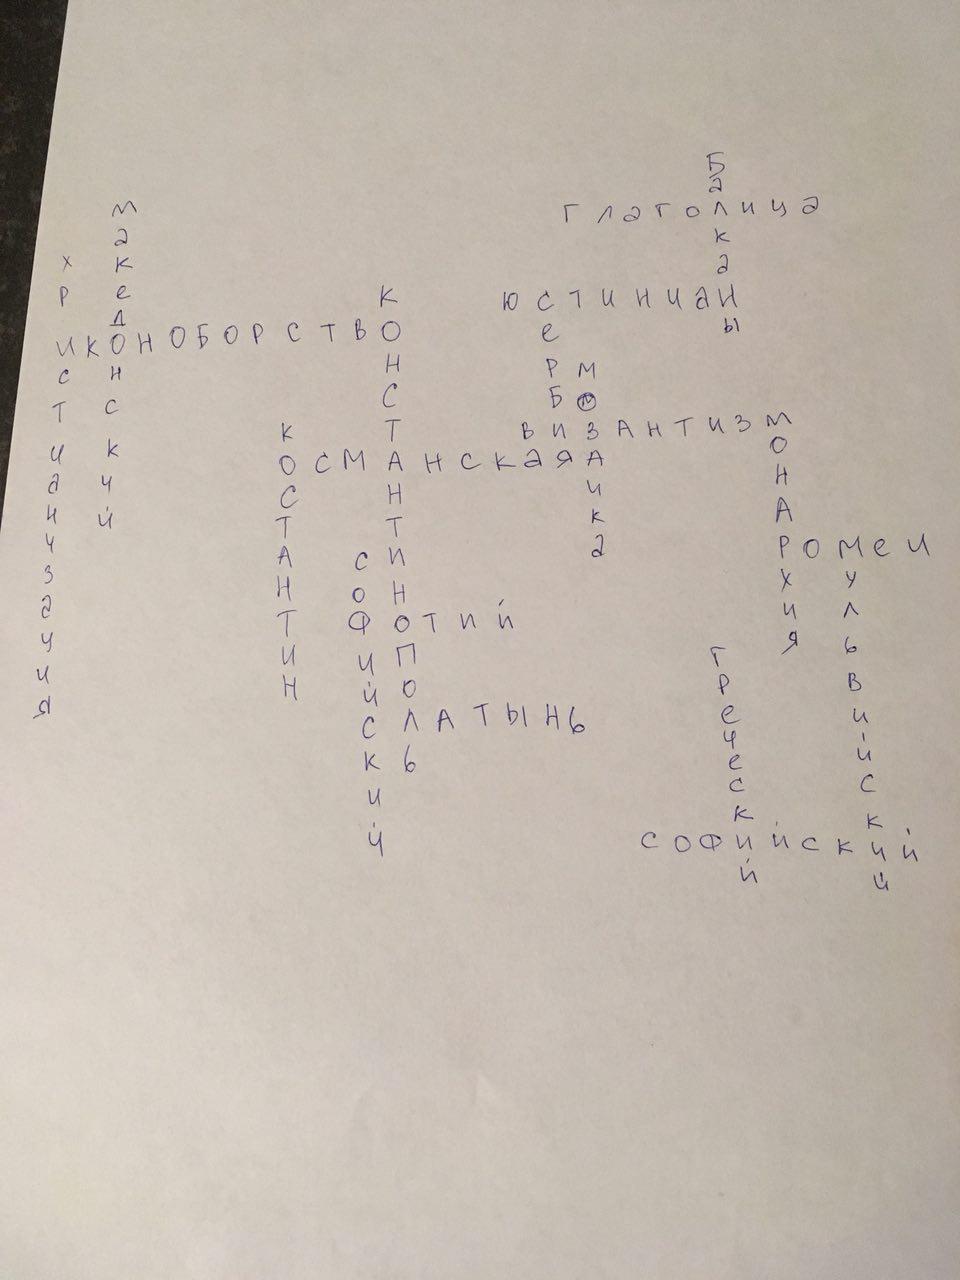 Балканы
Македонский
глаголица
христианизация
Константинополь
Юстиниан
иконоборство
Сербия
мозаика
византизм
монархия
Костантин
Османская
ромеи
мульвийский
софийский
Фотий
греческий
латынь
софийский